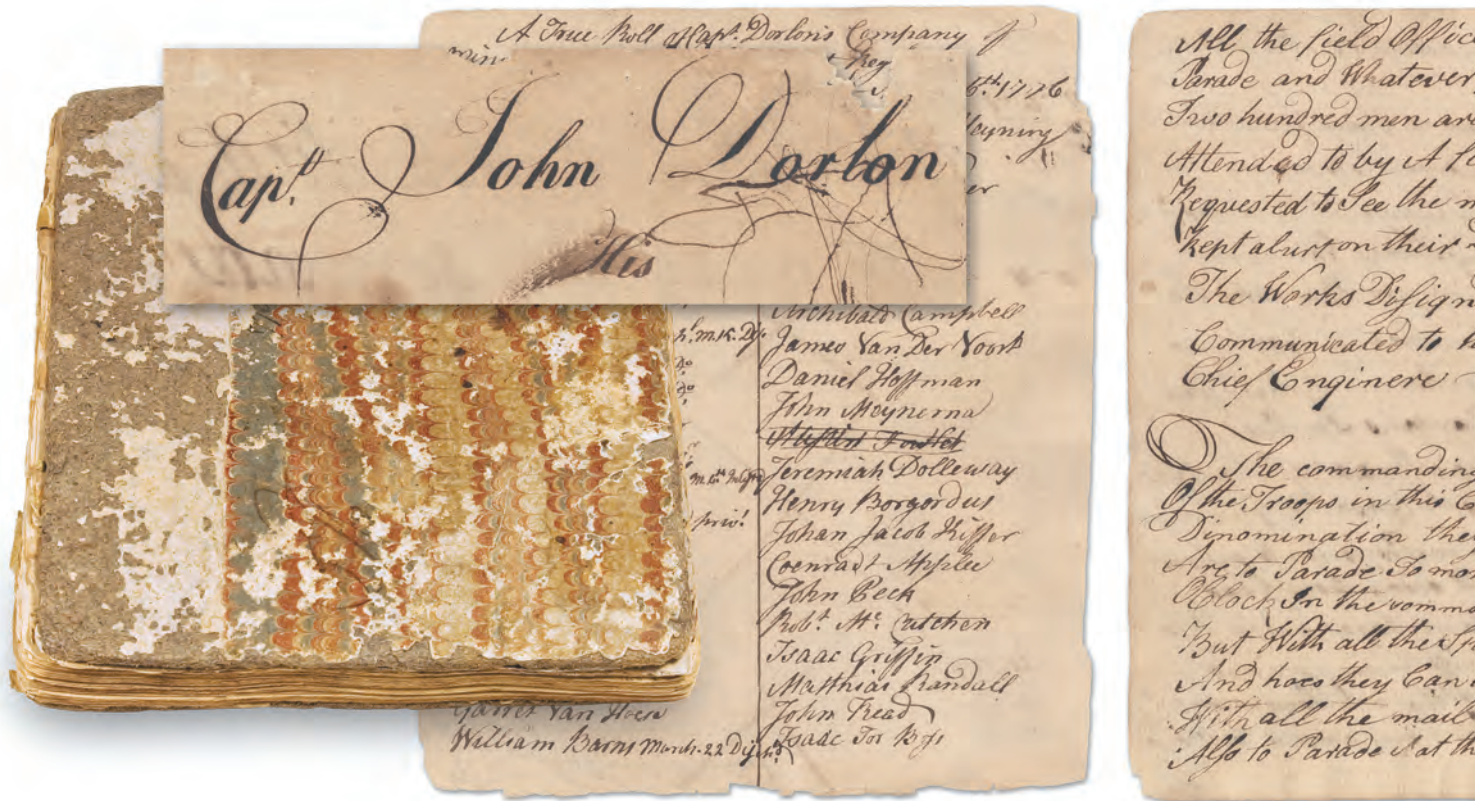 A True Roll of Capt. Dorlons Company of
Reg
6th. 1776
Capt. John Dorlon
His
Archibald Campbell
James Van Der Voort
Daniel Hoffman
John Meynema
Jeremiah Dolleway
Henry Borgordus
Johan Jacob Kiffer
Coenradt Applee
John Beck
Robt. Mc. Cutchen
Isaac Griffin
Matthias Randall
John Read
Isaac
priv!
Garret Van Hoesn
William Barns March. 22
All the field Offic
Parade and Whatever
Two hundred men are
Attended to by A
Requested to See the
Kept alurt on their
The Works Disign
Communicated to
Chief Enginere
The commanding
Of the Troops in this
Dinomination the
Are to Parade To mor
OClock In the comm
But With all the
And hoes they Can
With all the
Also to Parade at th